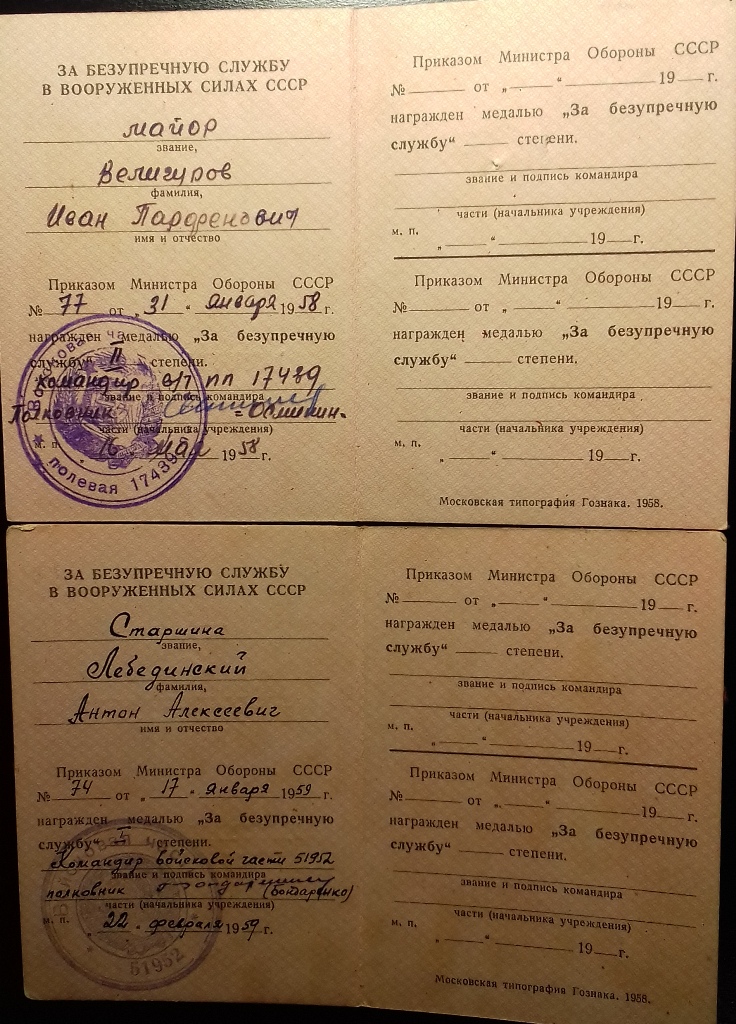 ЗА БЕЗУПРЕЧНУЮ СЛУЖБУ
В ВООРУЖЕННЫХ СИЛАХ СССР
майор
звание,
Велигуров
фамилия,
Иван Парфенович
имя и отчество
Приказом Министра Обороны СССР
№ 77 от „31“ января 1958 г.
награжден медалью „За безупречную
службу“ II степени.
Командир в/ч пп 17439
звание и подпись командира
Полковник Осипкин
части (начальника учреждения)
м. п. 16 мая 1958 г.
полевая 17439
Приказом Министра Обороны СССР
№ от „ “ 19 г.
награжден медалью „За безупречную
службу“ степени.
звание и подпись командира
части (начальника учреждения)
м. п.
„ “ 19 г.
Приказом Министра Обороны СССР
№ от „ “ 19 г.
награжден медалью „За безупречную
службу“ степени.
звание и подпись командира
части (начальника учреждения)
м. п.
„ “ 19 г.
Московская типография Гознака. 1958.
ЗА БЕЗУПРЕЧНУЮ СЛУЖБУ
В ВООРУЖЕННЫХ СИЛАХ СССР
Старшина
звание,
Лебединский
фамилия,
Антон Алексеевич
имя и отчество
Приказом Министра Обороны СССР
№ 74 от „17“ января 1959 г.
награжден медалью „За безупречную
службу“ степени.
Командир войсковой части 51952
звание и подпись командира
полковник (Бондаренко)
части (начальника учреждения)
м. п. „22“ февраля 1959 г.
51952
Приказом Министра Обороны СССР
№ от „ “ 19 г.
награжден медалью „За безупречную
службу“ степени.
звание и подпись командира
части (начальника учреждения)
м. п.
„ “ 19 г.
Приказом Министра Обороны СССР
№ от „ “ 19 г.
награжден медалью „За безупречную
службу“ степени.
звание и подпись командира
части (начальника учреждения)
м. п.
„ “ 19 г.
Московская типография Гознака. 1958.